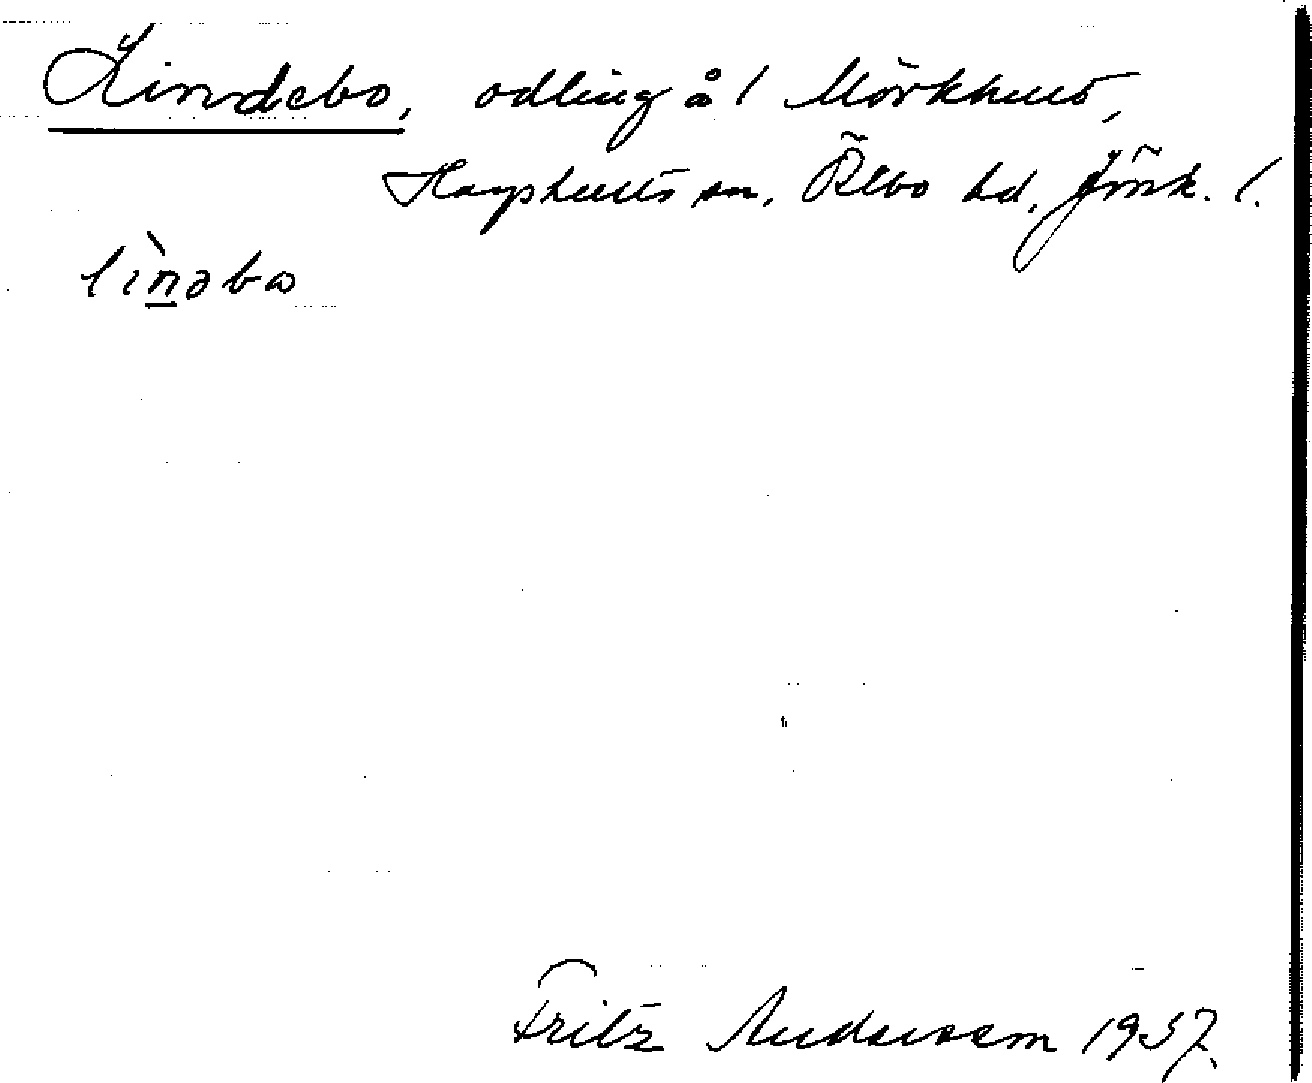 Lindebo, odling å 1 Mörkhult,
Hagshults sn, Östbo hd, Jönk. l.
lìnəbω
Fritz Anderson 1937.